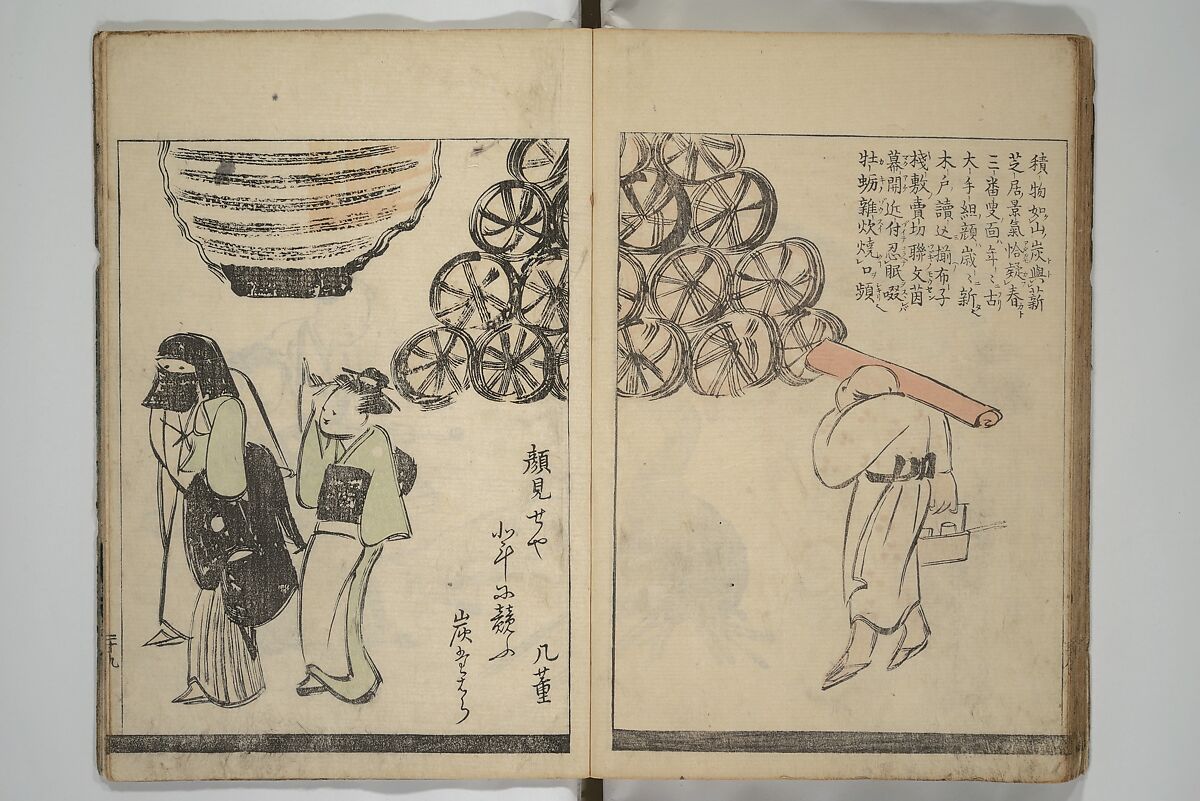 積物如山炭與薪
芝居景氣恰疑春
三番叟面年〻古
大手組顔歳〻新
木戸讀込揃布子
棧敷賣切聯文茵
幕開近付忍眠啜
牡蛎雜炊燒口頻
顔見せや
北斗に競ふ
炭たはら
几董